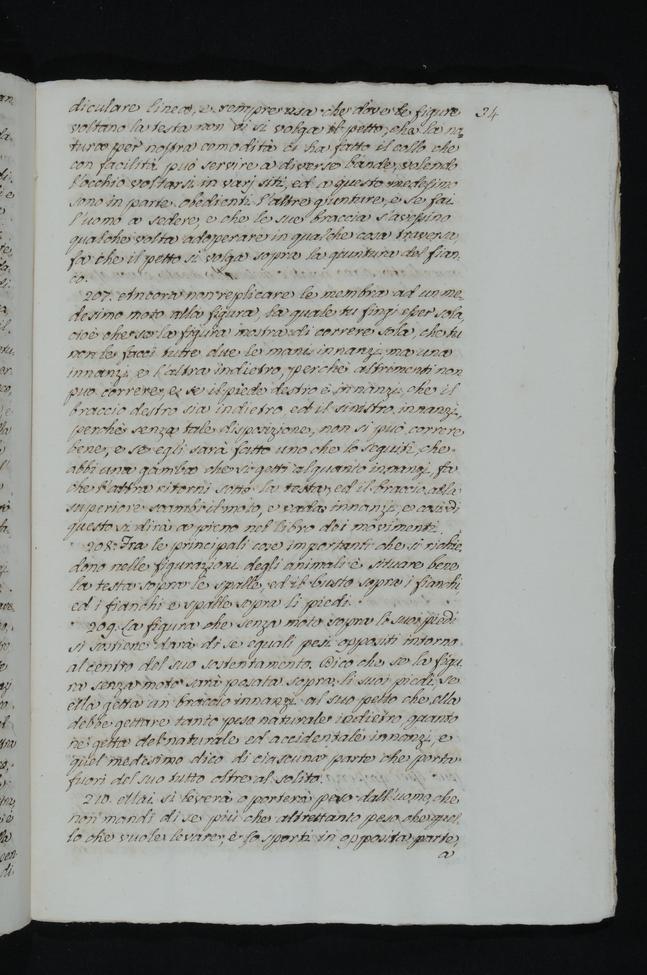 diculare linea, e sempre usa che dove le figure 34
voltano la testa non vi si volga il petto, che la na
tura per nostra comodità ci ha fatto il collo che
con facilità può servire a diverse bande, volendo
l'occhio voltarsi in varj siti, ed a questo medesimo
sono in parte obedienti l'altre giunture, e se fai
l'uomo a sedere, e che le sue braccia s'avessino
qualche volta adoperare in qualche cosa traversa,
fa che il petto si volga sopra la giuntura del fian
co.
207. Ancora non replicare le membra ad un me
desimo moto alla figura, la quale tu fingi esser sola,
cioè che se la figura mostra di correre sola, che tu
non le facci tutte due le mani innanzi, ma una
innanzi, e l'altra indietro, perchè altrimenti non
può correre, e se il piede destro è innanzi, che il
braccio destro sia indietro, ed il sinistro innanzi,
perchè senza tale disposizione, non si può correre
bene, e se egli sarà fatto uno che lo seguiti, che
abbi una gamba che si getti alquanto innanzi, fa
che l'altra ritorni sotto la testa, ed il braccio alla
superiore scambi il moto, e vada innanzi, e così di
questo si dirà a pieno nel libro dei movimenti.
208. Tra le principali cose importanti che si richie
dono nelle figurazioni degli animali è situare bene
la testa sopra le spalle, ed il busto sopra i fianchi,
ed i fianchi e spalle sopra li piedi.
209. La figura che senza moto sopra li suoi piedi
si sostiene darà di se equali pesi oppositi intorno
al centro del suo sostentamento. Dico che se la figu
ra senza moto sarà posata sopra li suoi piedi, se
ella getta un braccio innanzi al suo petto che ella
debbe gettare tanto peso naturale indietro, quanto
ne getta del naturale ed accidentale innanzi, e
quel medesimo dico di ciascuna parte che porta
fuori del suo tutto oltre al solito.
210. Mai si leverà o porterà peso dall'uomo, che
non mandi di se più che altrettanto peso, che quel
lo che vuole levare, e lo sporti in opposita parte,
a